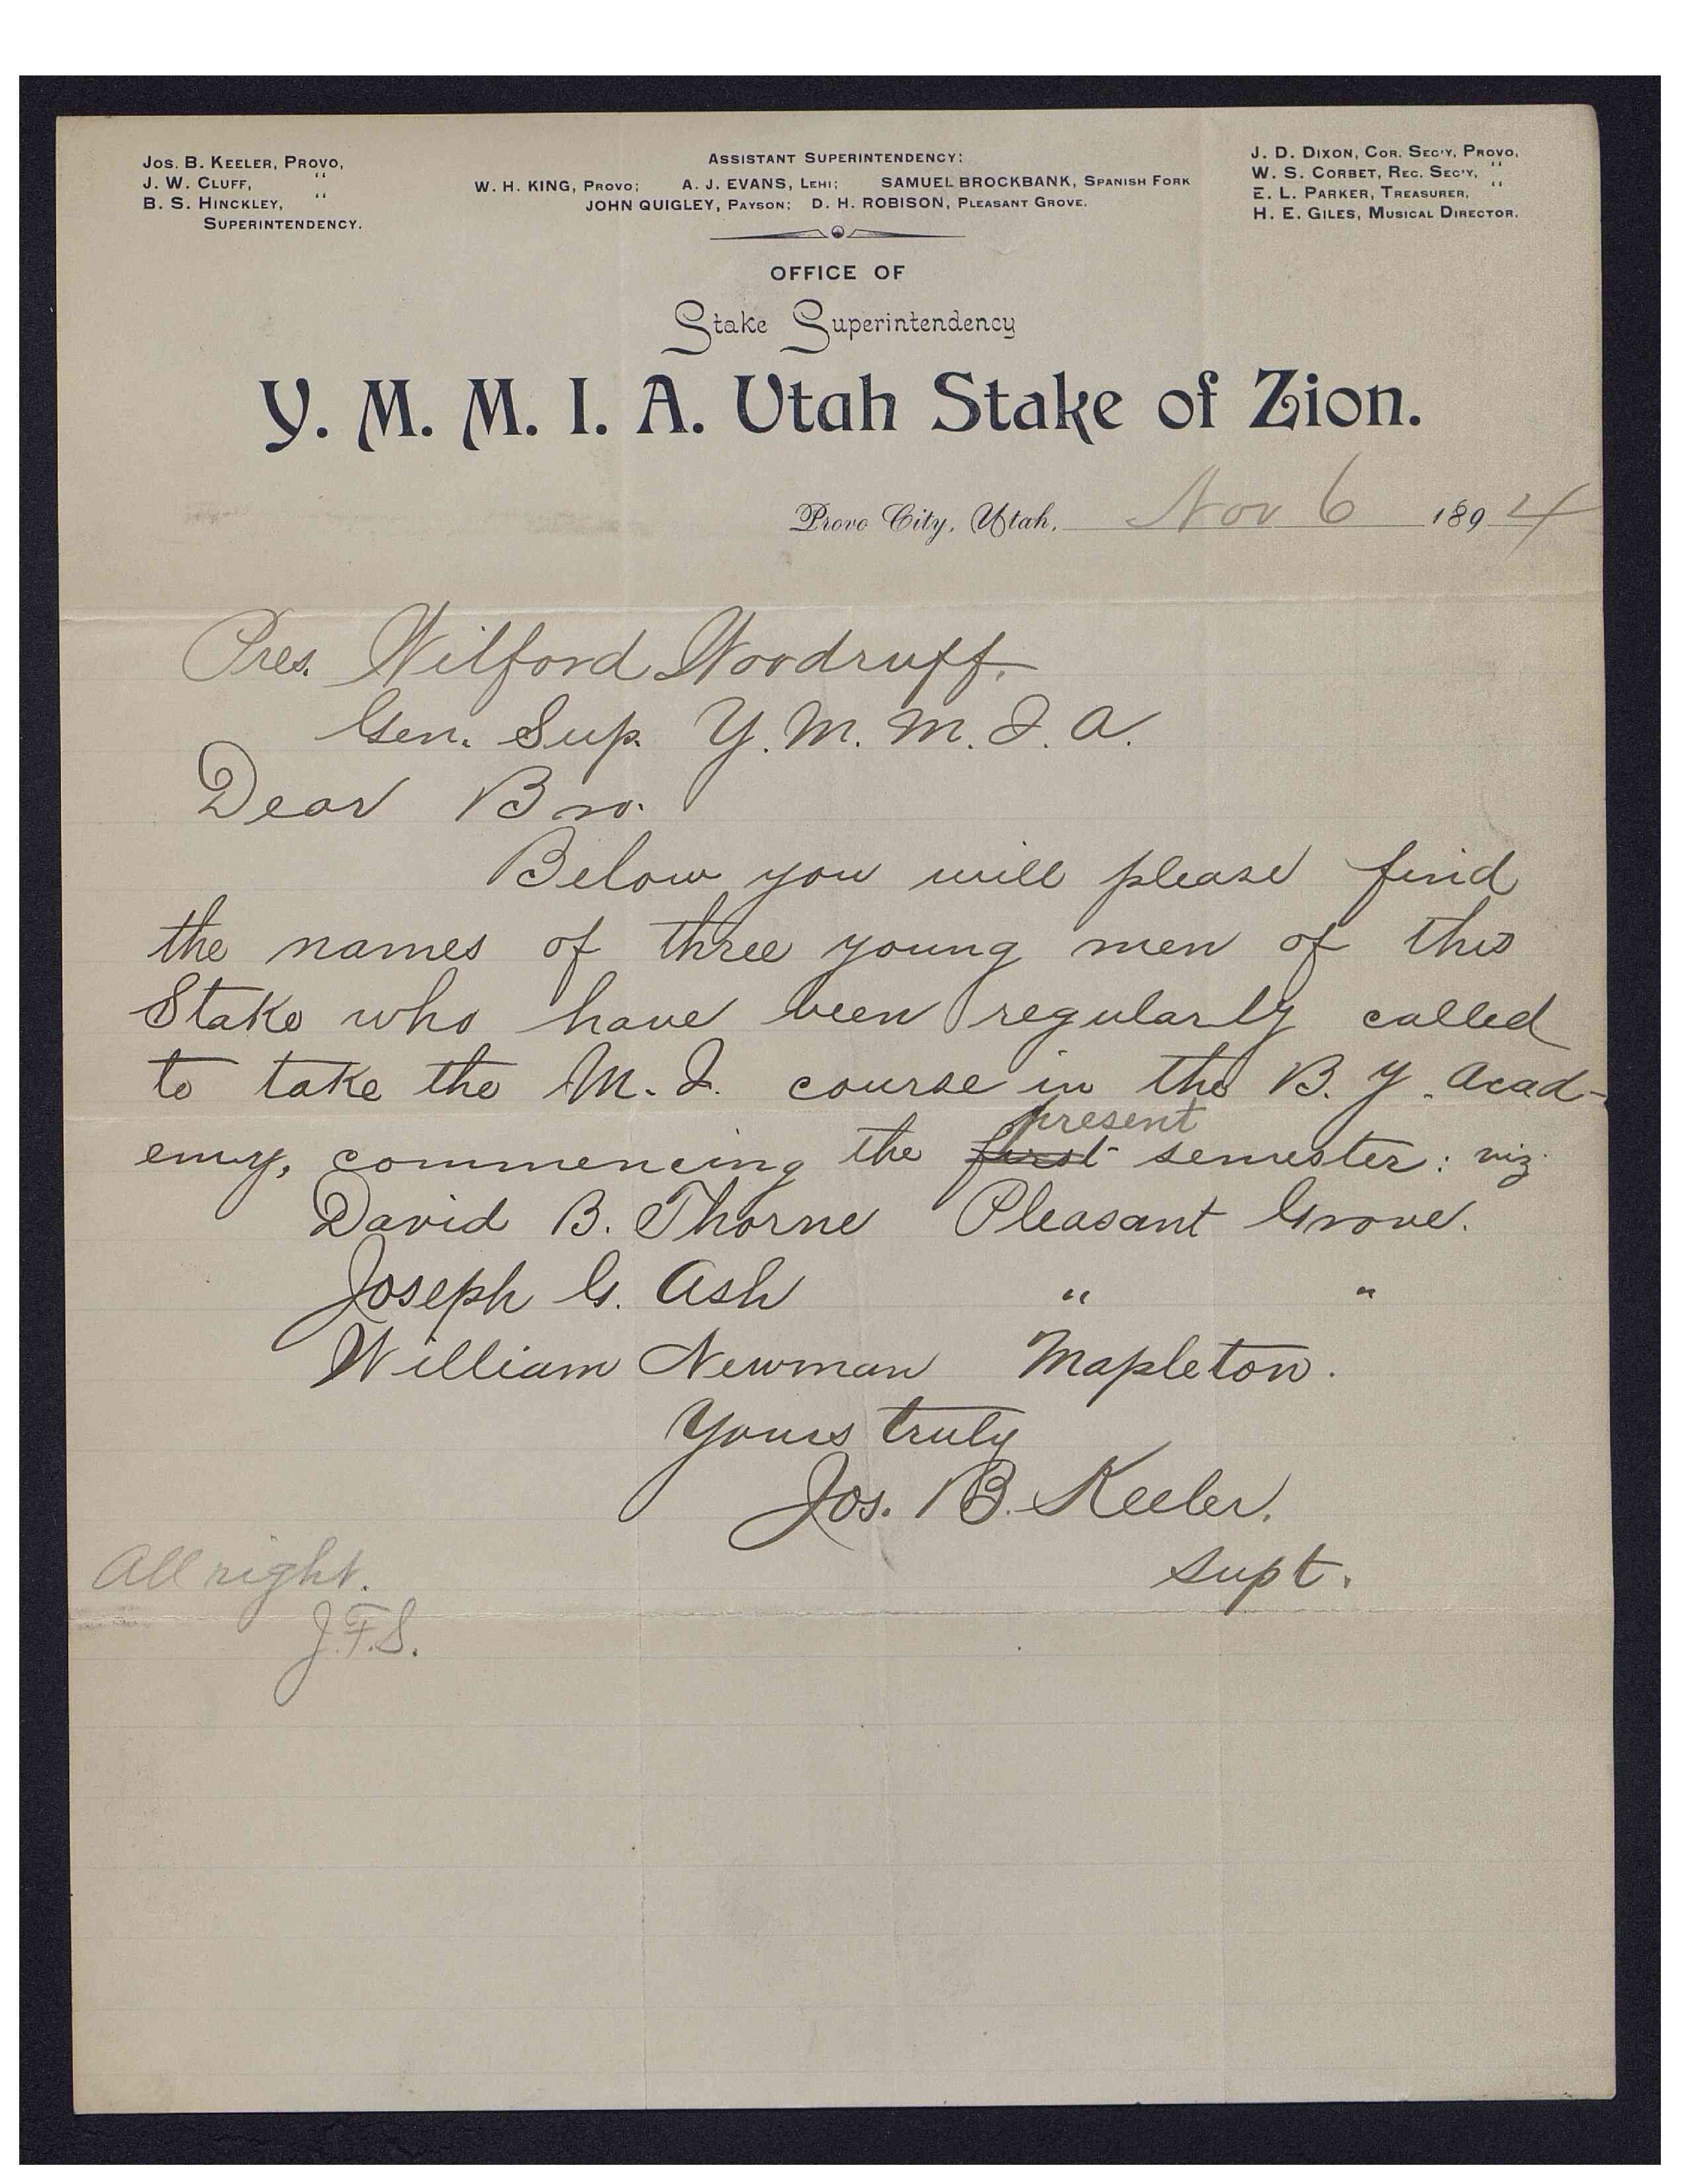 Jos. B. Keeler, Provo,
J. W. Cluff, "
B. S. Hinckley, "
Superintendency.
Assistant Superintendency:
W. H. KING, Provo; A. J. EVANS, Lehi; SAMUEL BROCKBANK, Spanish Fork
JOHN QUIGLEY, Payson; D. H. ROBISON, Pleasant Grove.
J. D. Dixon, Cor. Sec'y, Provo,
W. S. Corbet, Rec. Sec'y, "
E. L. Parker, Treasurer, "
H. E. Giles, Musical Director.
OFFICE OF
Stake Superintendency
Y. M. M. I. A. Utah Stake of Zion.
Provo City, Utah, Nov 6 1894
Pres. Wilford Woodruff.
Gen. Sup. Y. M. M. I. A.
Dear Bro.
Below you will please find
the names of three young men of this
Stake who have been regularly called
to take the M. I. course in the B. Y. Acad-
present
emy, commencing the first semester: viz.
David B. Thorne Pleasant Grove.
Joseph G. Ash " "
William Newman Mapleton.
Yours truly
Jos. B. Keeler.
Supt.
All right.
J.F.S.